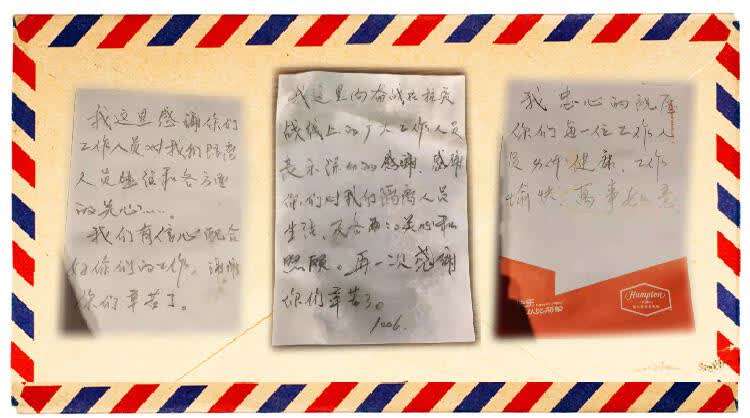 我这里感谢你们
工作人员对我们隔离
人员生活和各方面
的关心……。
我们有信心配合
好你们的工作。谢谢
你们辛苦了。
我这里向奋战在抗疫
战线上的广大工作人员
表示深切的感谢、感谢
你们对我们隔离人员
生活、及各方面的关心和
照顾。再一次感谢
你们辛苦了。
1006.
我忠心的祝愿
你们每一位工作人
员身体健康、工作
愉快、万事如意
Hampton